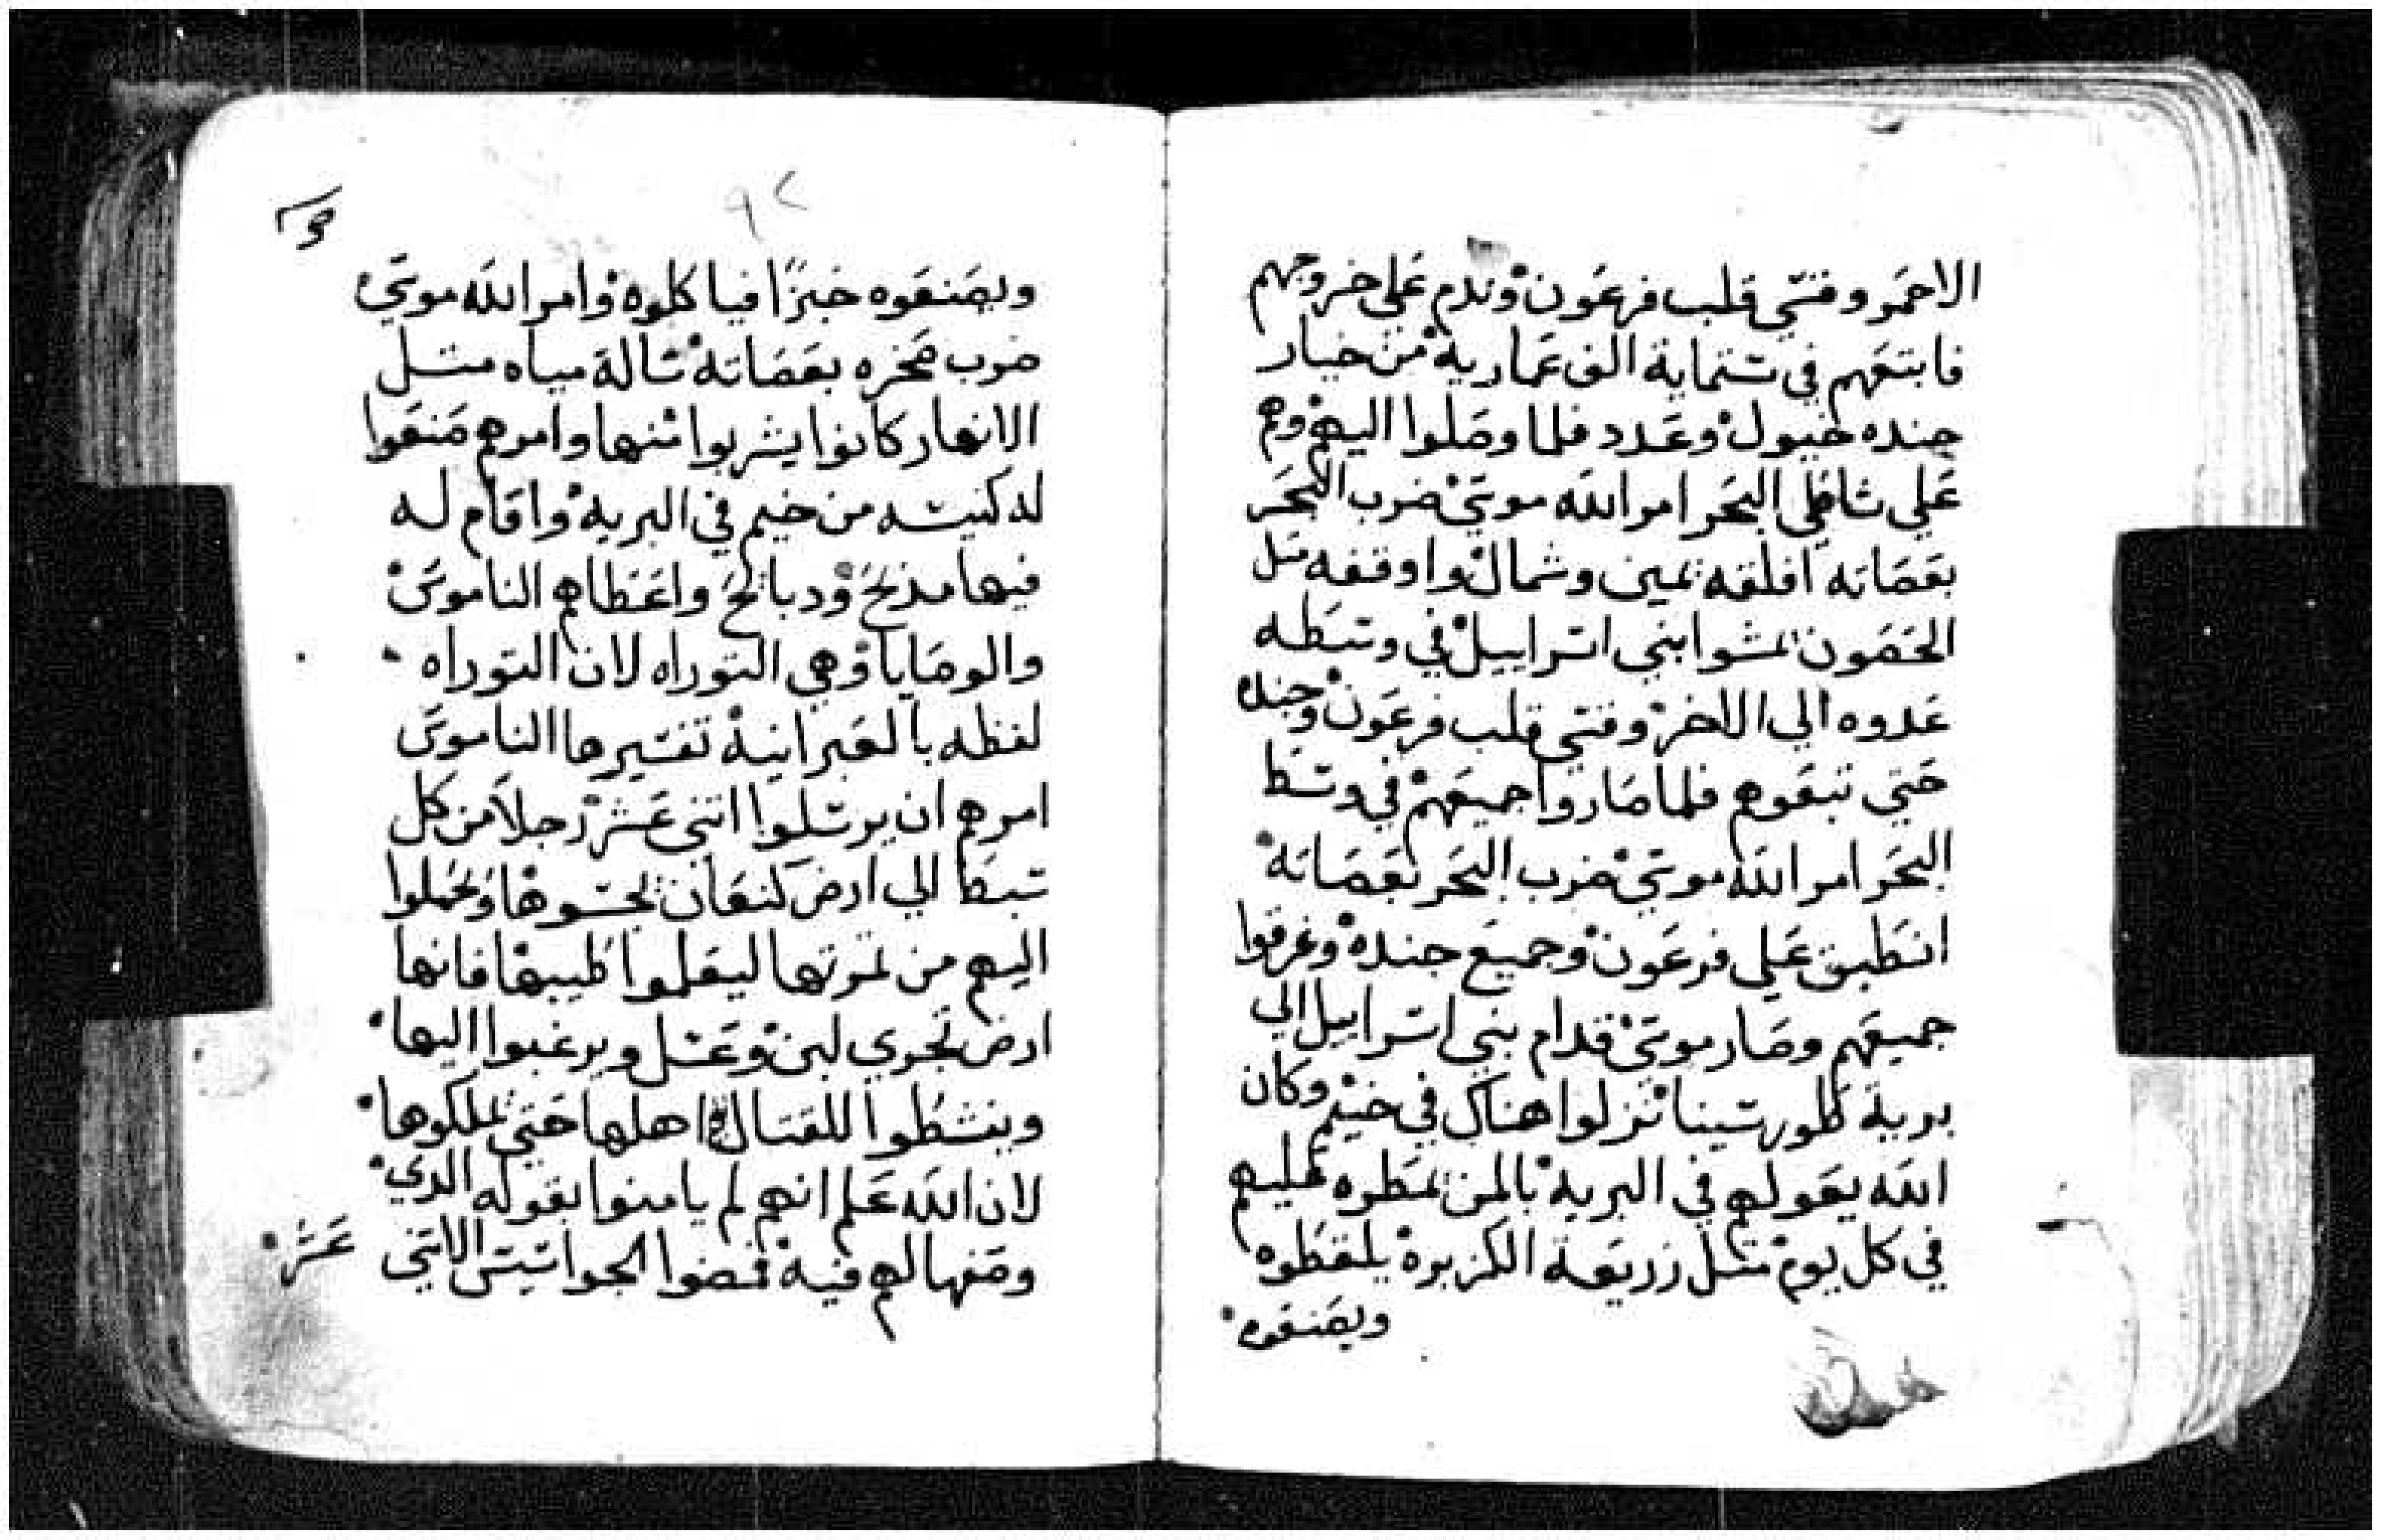 الاحمر وقسي قلب فرعون وندم علي خروجهم
فابتعهم في ستماية الف عمارية من خيار
جنده خيول وعدد فلما وصلوا اليهم وهم
علي شاطي البحر امر الله موسي ضرب البحر
بعصاته افلقه يمين وشمال واوقفه مثل
الحصون مشوا بني اسراييل في وسطه
عدوه الي الاخر وقسي قلب فرعون وجنده
حتي تبعوهم فلما صاروا جميعهم في وسط
البحر امر الله موسي ضرب البحر بعصاته
انطبق علي فرعون وجميع جنده وغرقوا
جميعهم وصار موسي قدام بني اسراييل الي
برية طور سينا نزلوا هناك في خيم وكان
الله يعولهم في البرية بالمن يمطره عليهم
في كل يوم مثل زريعة الكزبرة يلقطوه
ويصنعوه
٩٢
ويصنعوه خبزًا فياكلوه وامر الله موسي
ضرب صخره بعصاته سالة مياه مثل
الانهار كانوا يشربوا منها وامرهم صنعوا
له كنيسه من خيم في البرية واقام له
فيها مذبح ودبايح واعطاهم الناموس
والوصايا وهي التوراه لان التوراه
لفظه بالعبرانية تفسيرها الناموس
امرهم ان يرسلوا اثني عشر رجلا من كل
سبط الي ارض كنعان يجسوها ويحملوا
اليهم من ثمرتها ليعلموا طيبها فانها
ارض تجري لبن وعسل ويرغبوا اليها
وينشطوا للقتال في اهلها حتي يملكوها
لان الله علم انهم لم يامنوا بقوله الذي
وصفها لهم فيه فمضوا الجواسيس الاثني عشر